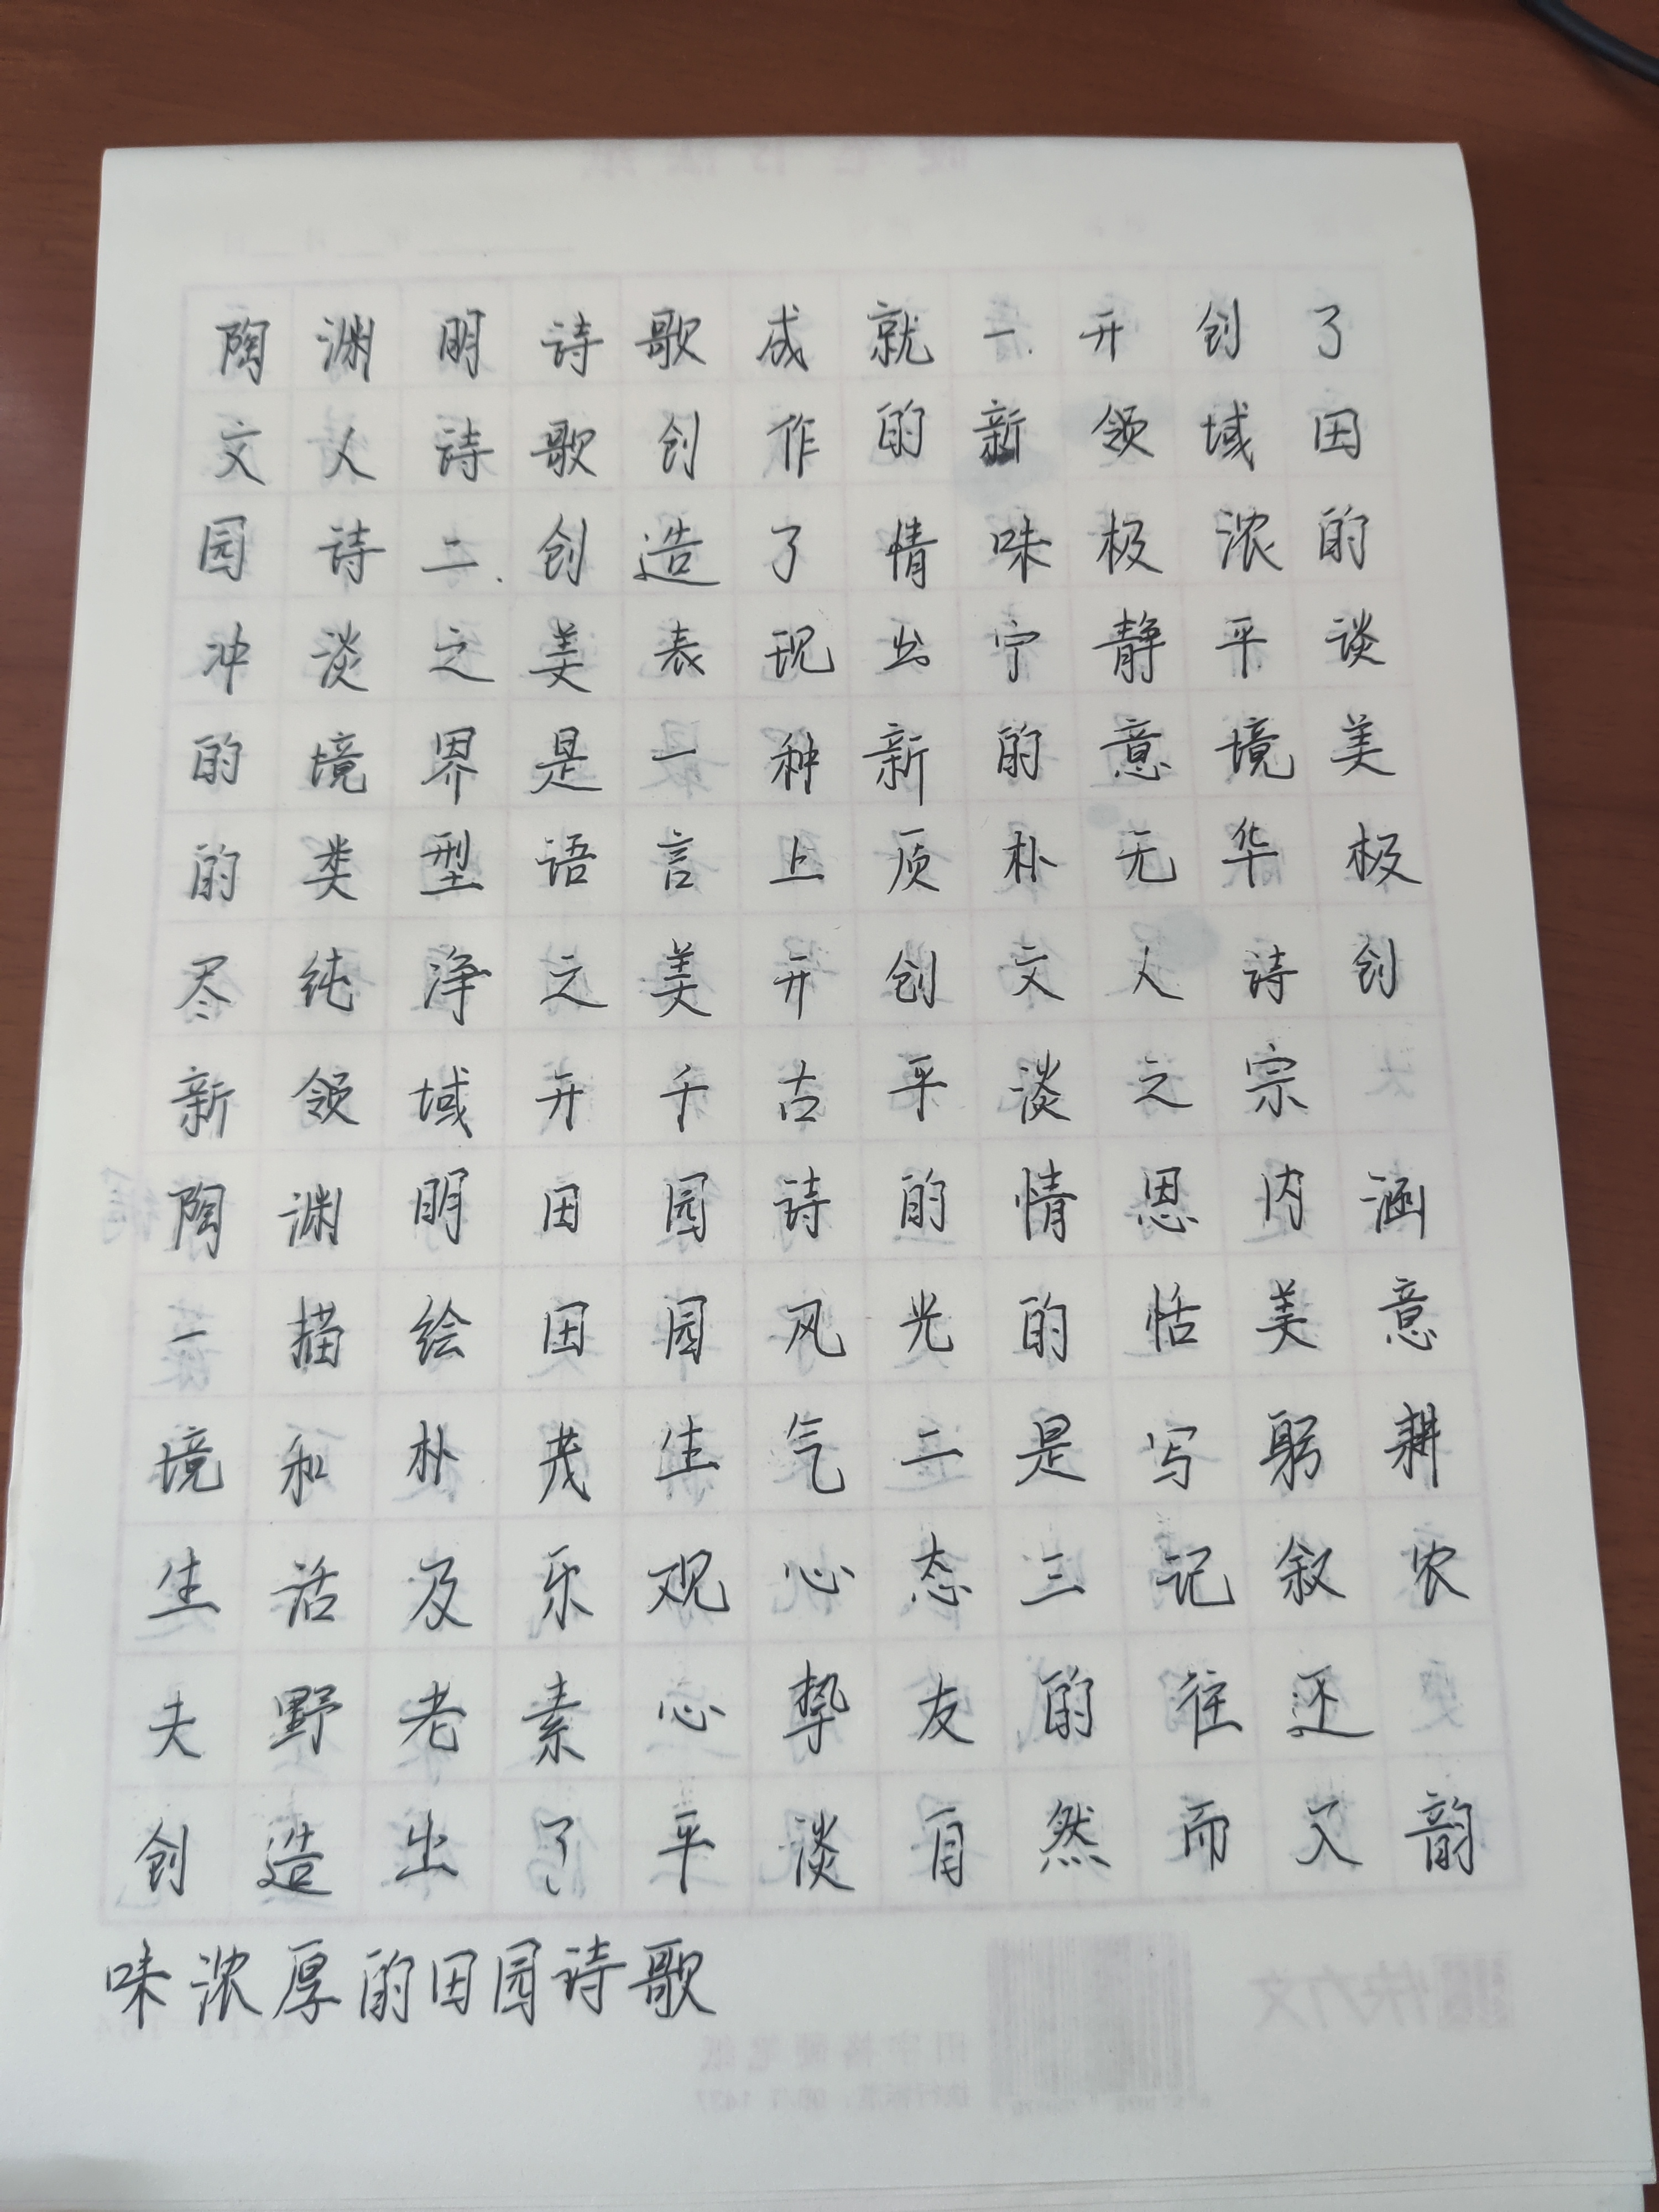 陶渊明诗歌成就一.开创了
文人诗歌创作的新领域田
园诗二.创造了情味极浓的
冲淡之美表现出宁静平谈
的境界是一种新的意境美
的类型语言上质朴无华极
尽纯净之美开创文人诗创
新领域开千古平淡之宗
陶渊明田园诗的情思内涵
一描绘田园风光的恬美意
境和朴茂生气二是写躬耕
生活及乐观心态三记叙农
夫野老素心挚友的往还
创造出了平淡自然而入韵
味浓厚的田园诗歌